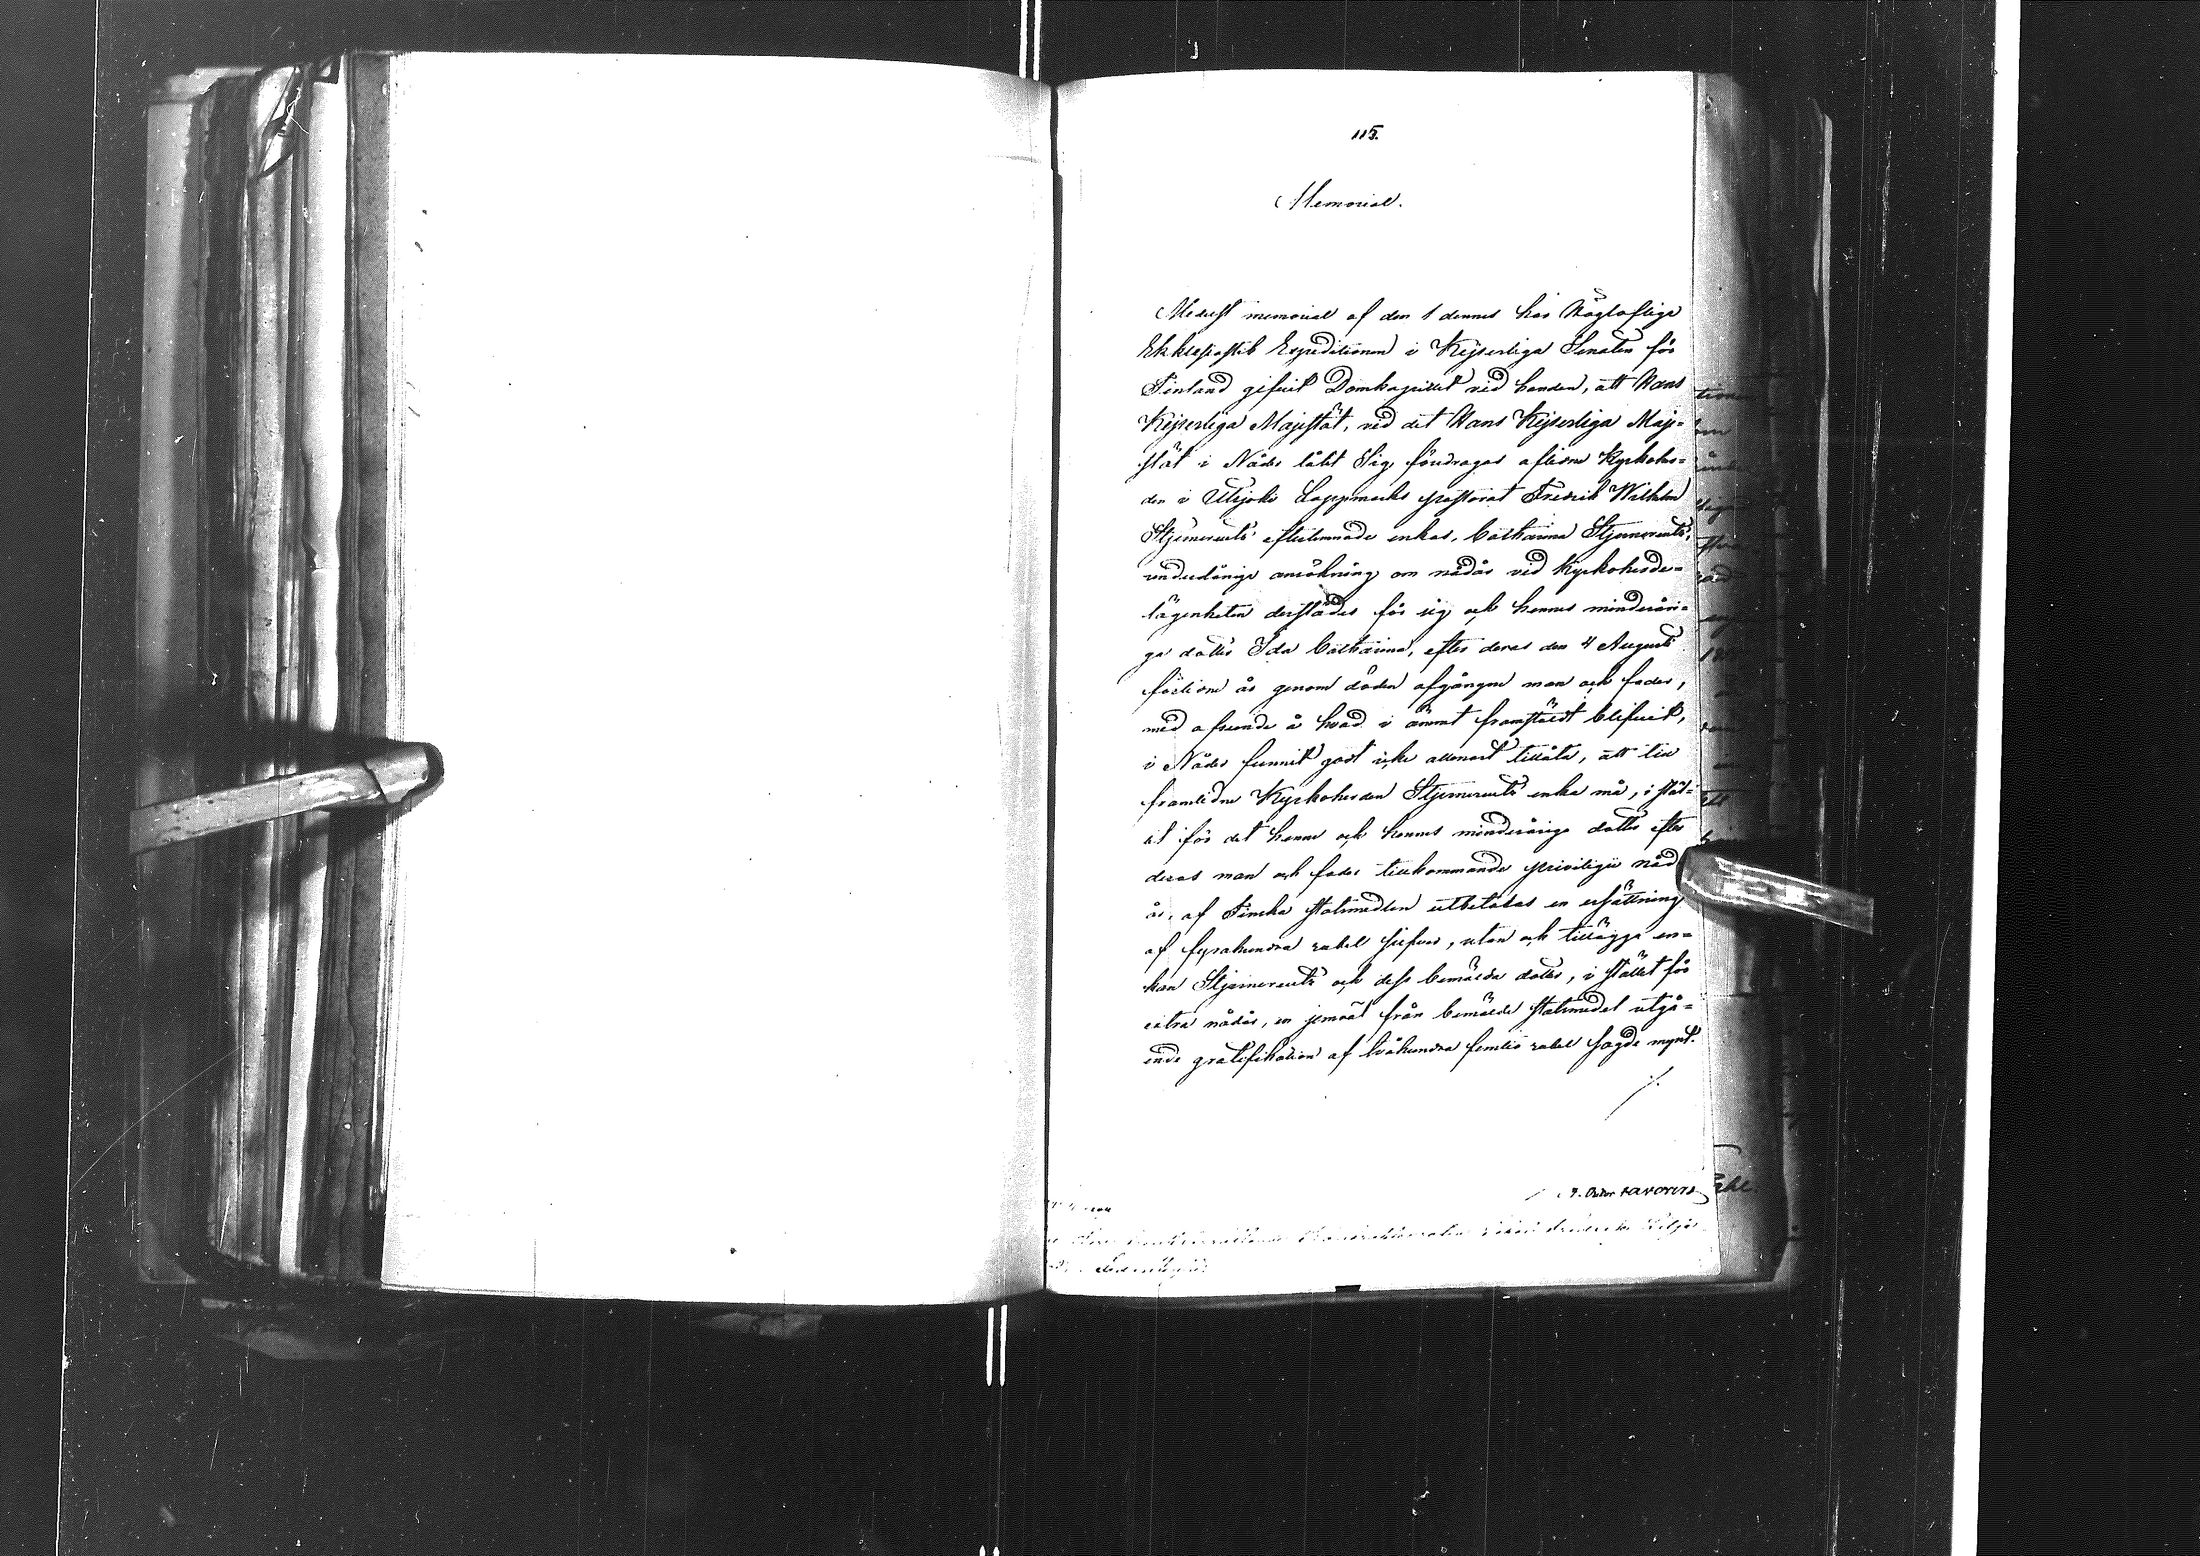 115.
Memorial.
Medelst memorial af den 1 dennes har Högloflige
Ekklesiastik Expeditionen i Kejserliga Senaten för
Finland gifvit Domkapitlet vid handen, att Hans
Kejserliga Majestät, vid det Hans Kejserliga Maje-
stät i Nåder låtit Sig föredragas aflidne Kyrkoher-
den i Utsjoki Lappmarks pastorat Fredrik Wilhelm
Stjerncreutz' efterlemnade enkas, Catharina Stjerncreutz',
underdåniga ansökning om nådår vid Kyrkoherde-
lägenheten derstädes för sig och hennes minderåri-
ga dotter Ida Catharina, efter deras den 4 Augusti
förlidne år genom döden afgångne man och fader,
med afseende å hvad i ämnet framstäldt blifvit,
i Nåder funnit godt icke allenast tillåta, att till
framlidne Kyrkoherden Stjerncreutz enka må, i stäl-
let för det henne och hennes minderåriga dotter efter
deras man och fader tillkommande privilegii nåd
år, af Finska statsmedlen utbetalas en ersättning
af fyrahundra rubel silfver, utan och tillägga en-
kan Stjerncreutz och dess bemälda dotter, i stället för
extra nådår, en jemväl från bemälde statsmedel utgå-
ende gratifikation af tvåhundra femtio rubel sagde mynt.